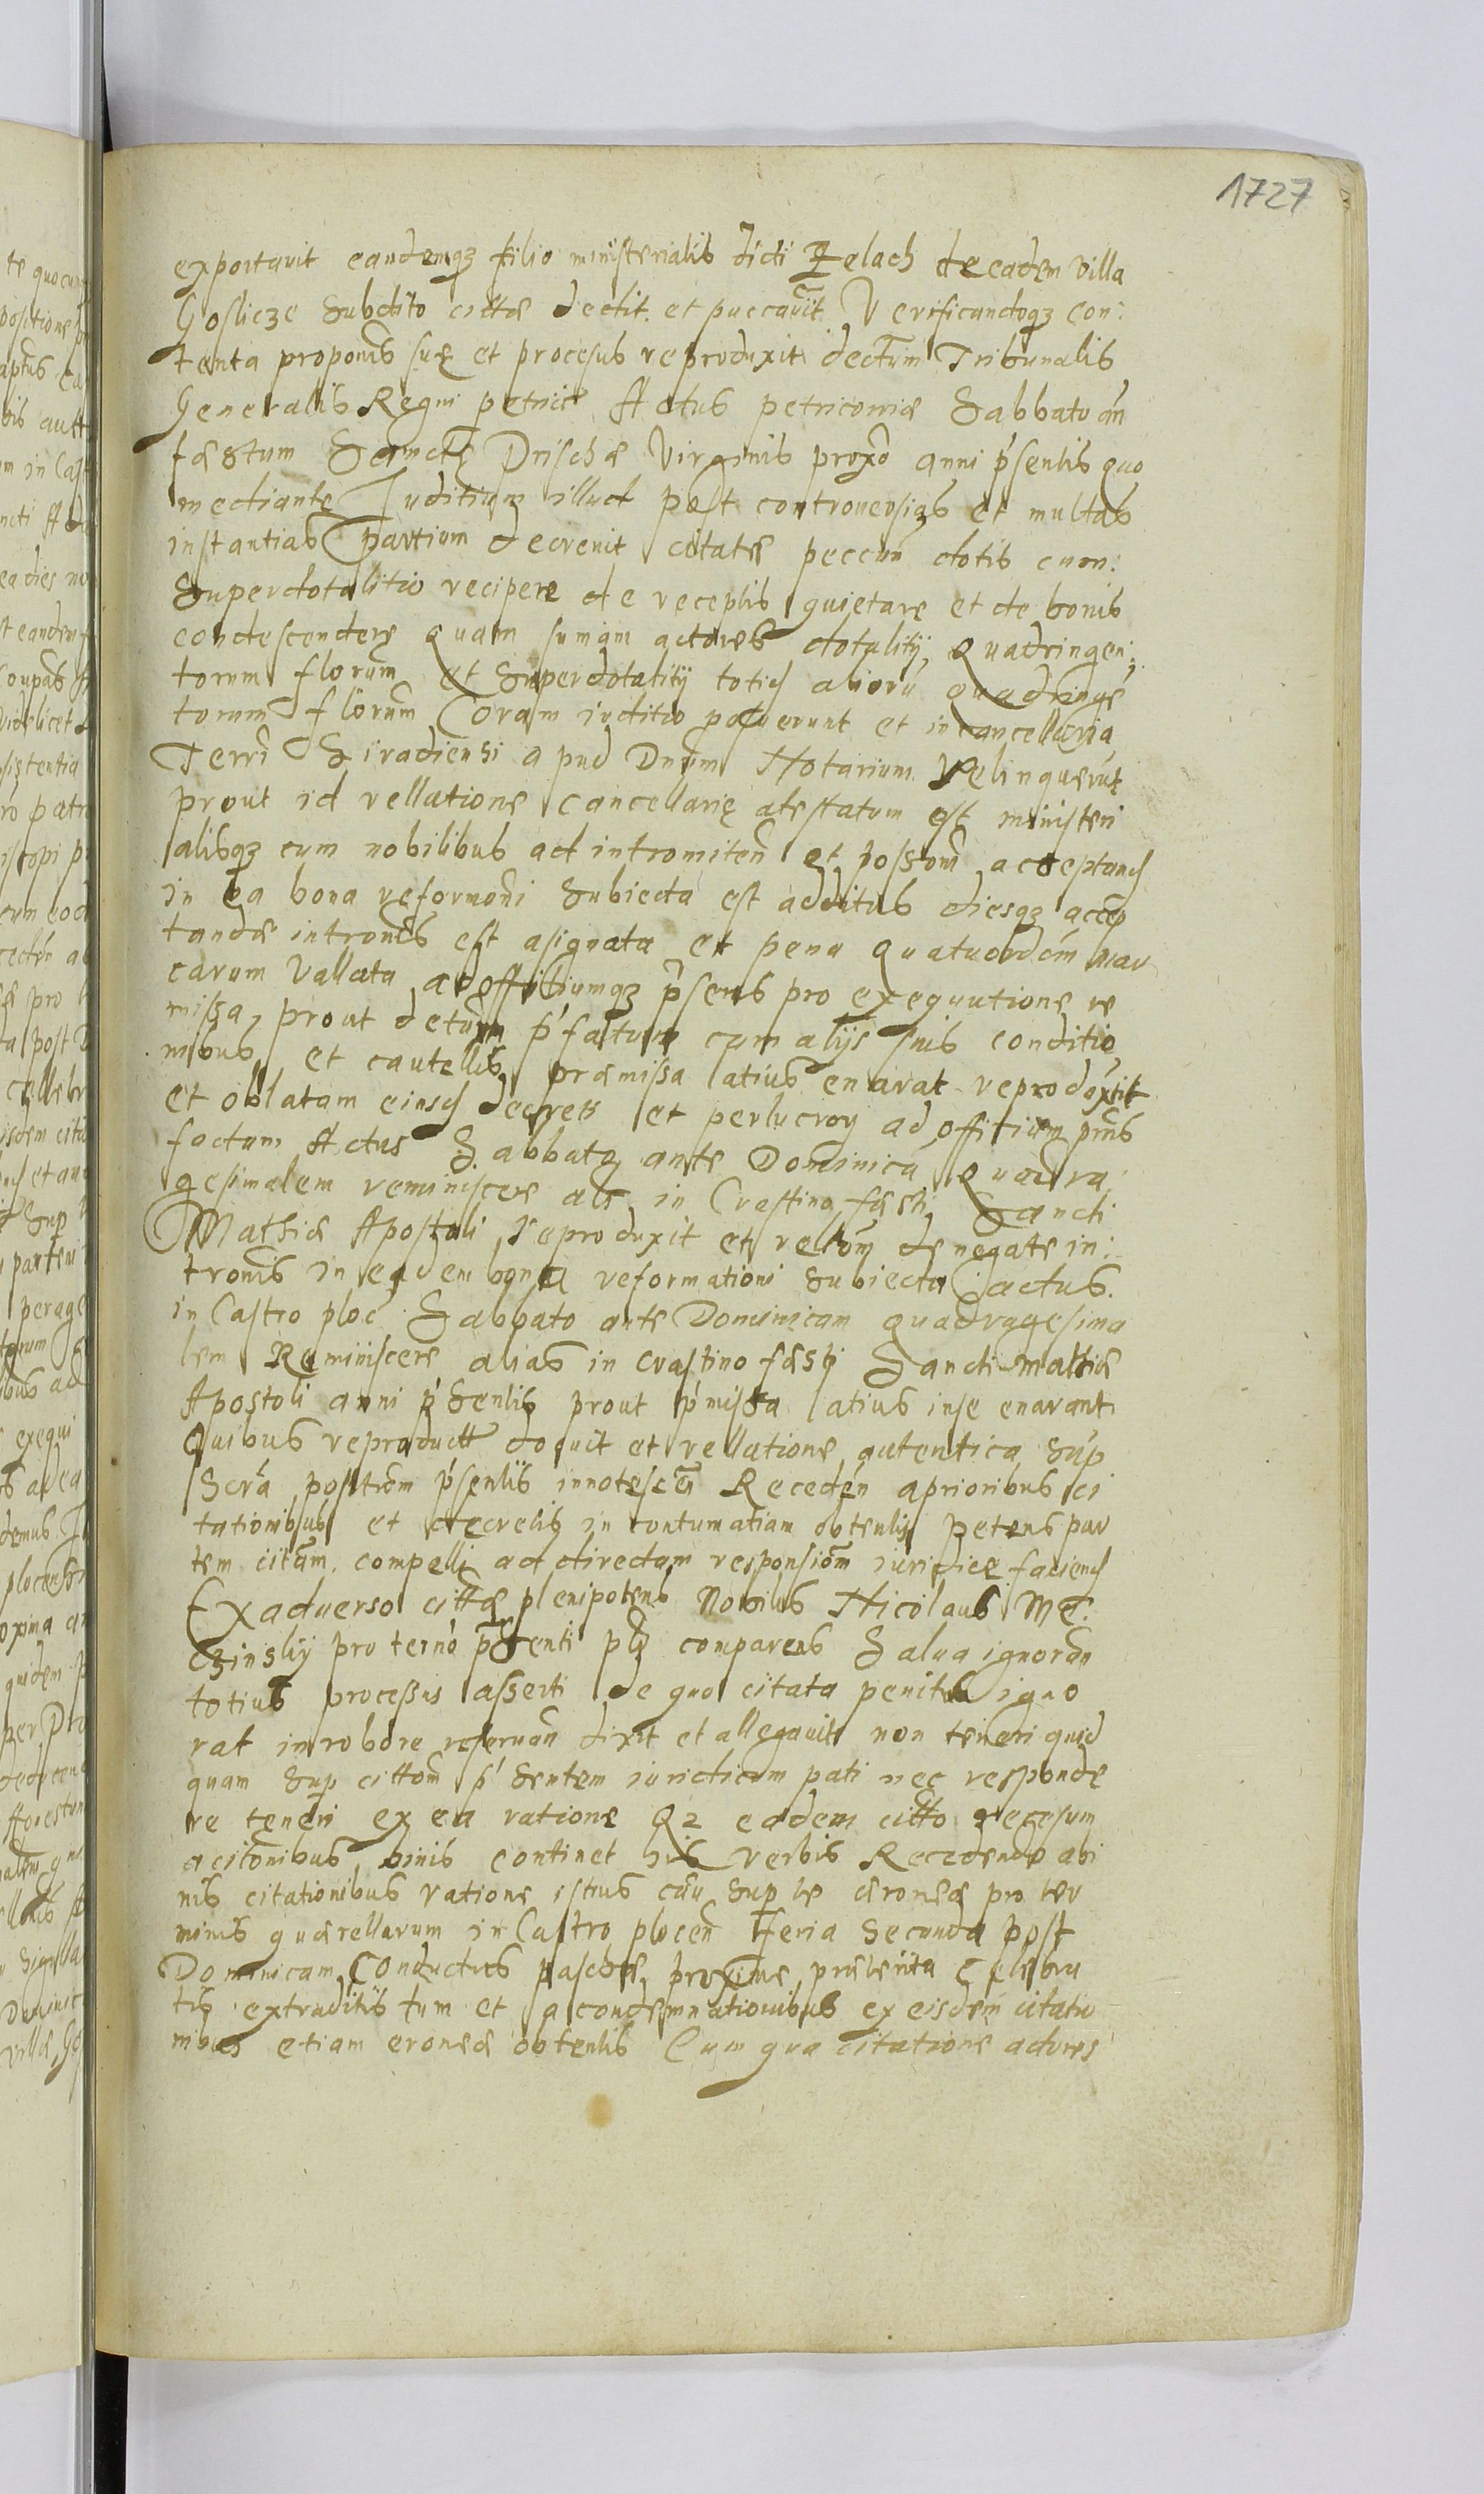 1727
exportauit eandemq3 filio ministerialis dicti Pelach de eadem villa
Goslicze Subdito cittae dedit et precauit Verificandoq3 con:
tenta proponis suę et procesus reproduxit dectum Tribunalis
Generalis Regni petric Actus petricouiæ Sabbato an
fæstum Sanctę Prischæ Virginis proxo anni p'sentis quo
mediante Juditium illud post controuersias et multas
instantias partium decreuit citatæ peccun dotis cum:
Superdotalitio recipere de receptis quietare et de bonis
condescendere quam sumam actores dotalitij Quadringen:
torum florum et Superdotalitij totid aliorū quadringē
torum florum Coram iuditio posuerunt et in cancellaria
Terri Siradiensi apud Dnum Notarium Relinquerūt
prout id rellatione cancellarię atestatum est ministeri
alisq3 cum nobilibus ad intromiten et possom acceptand
in ea bona reformoni Subiecta est additus diesq3 accep
tandæ intronis est asignata et pena quatuordcim mar
carum Vallata ad offitiumq3 p'sens pro exequutione re
missa, prout detum p'fatum cum alijs suis conditio
nibus et cautellis præmissa latius enarat reproduxit
et oblatam eiusd decreti et perlucroy ad offitium pns
factum Actus Sabbato ante Dominicā Quadra
gesimalem reminiscere als in Crastino fæsti Sancti
Mathiæ Apostoli reproduxit et reltom denegate in:
tronis in eadem bona reformationi Subiecta actus.
in Castro ploc Sabbato ante Dominicam quadragesima
lem Reminiscere alias in crastino fæsti Sancti Mathiæ
Apostoli anni p'sentis prout p'missa latius inse enarant
Quibus reproductt docuit et rellatione autentica Sup
Scra positiom p'sentis innotescen Receden aprioribus ci
tationibus et decretis in contumatiam obtentis petens par
tem citam compelli ad directam responsiom iuridice faciend
Exaduerso cittæ plenipotens Nobilis Nicolaus Me:
czinskÿ pro terno p'senti plr comparens Salua ignoran
totius processus asserti de quo citata penitus igno
rat in robore reseruan dixit et allegauit non teneri quid
quam Sup cittom p'sentem iuridicum pati nec responde
re teneri ex ea ratione Q2 eadem citto recesum
acitonibus binis continet his verbis Recedendo abi
nis citationibus ratione istius cau Sup te æroneæ pro ter
minis quærellarum in Castro plocen Feria Secunda post
Dominicam Conductus paschæ proxime præterita Celebra
tis extraditis tum et a condemnationibus ex eisdem citatio
nibus etiam eroneæ obtentis Cum qua citatione actores